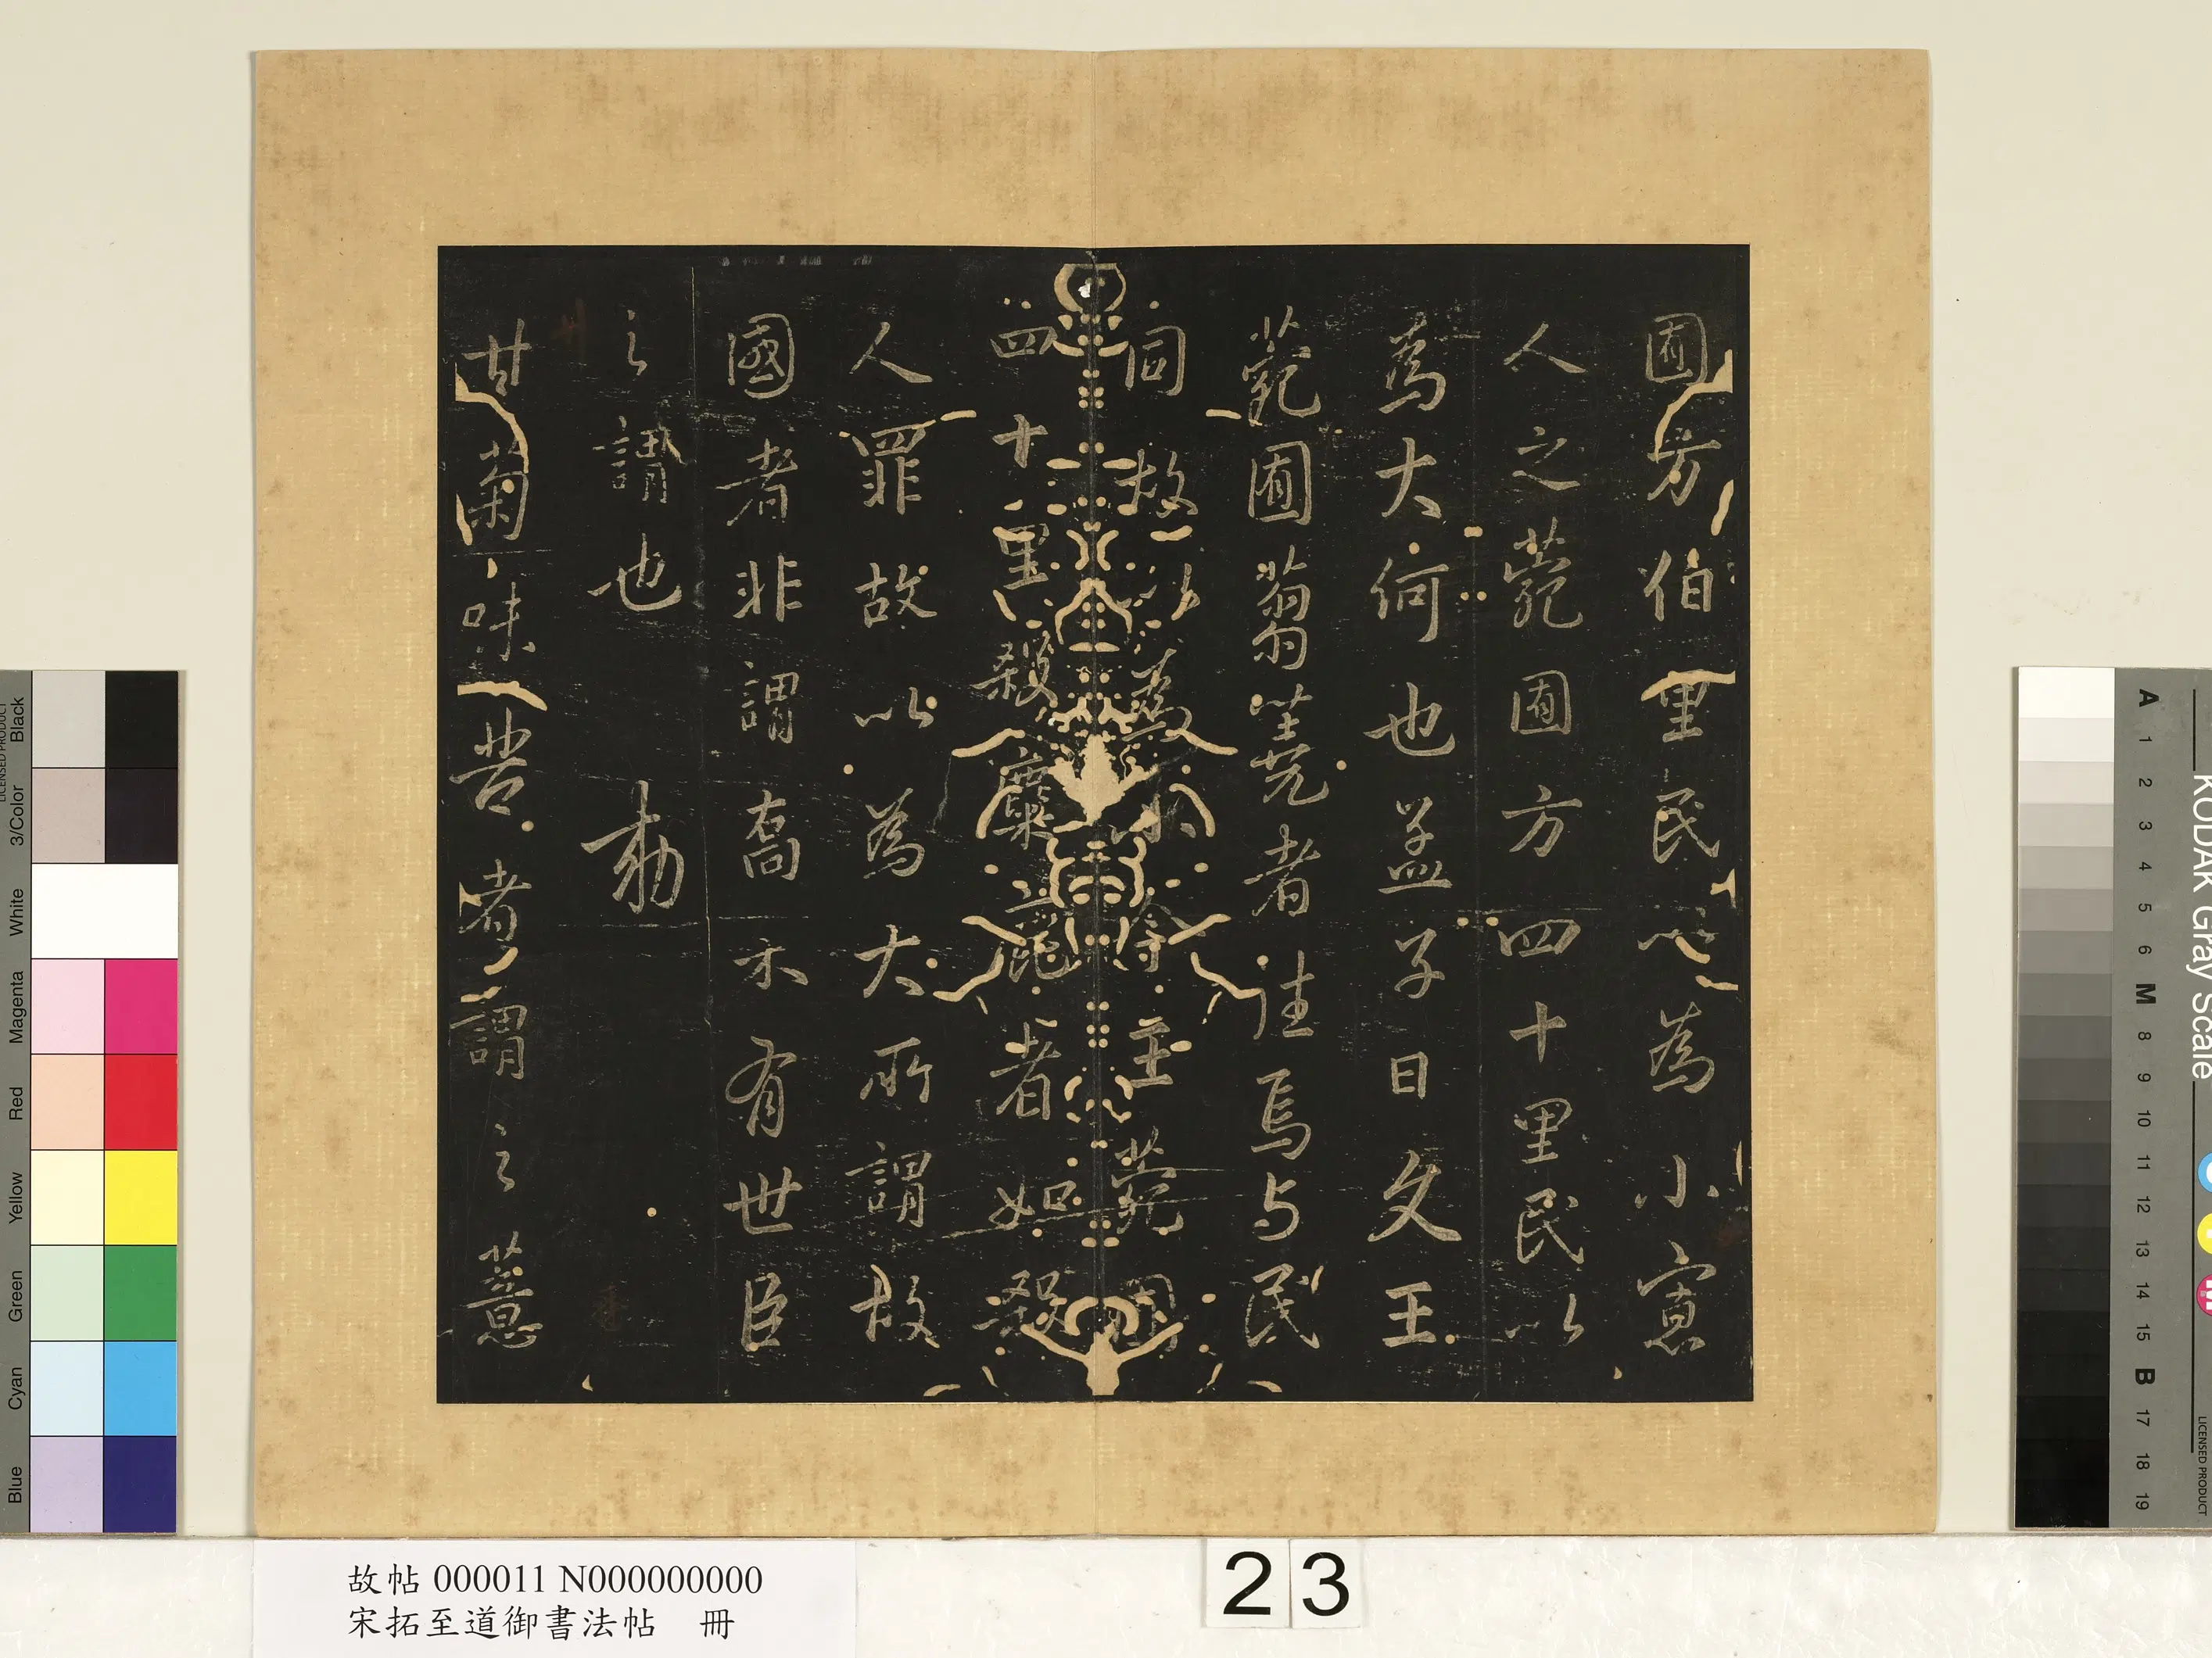 囿方伯里民以為小寡
人之菀囿方四十里民以
為大何也孟子曰文王
菀囿蒭蕘者往焉与民
同故以為小今王菀囿
四十里殺麋鹿者如殺
人罪故以為大所謂故
國者非謂喬木有世臣
之謂也 勅
甘菊味苦者謂之薏
故帖 000011 N000000000
宋拓至道御書法帖 冊
23
Black
3/Color
White
Magenta
Red
Yellow
Green
Cyan
Blue
LICENSED PRODUCT
KODAK Gray Scale
A 1 2 3 4 5 6 M 8 9 10 11 12 13 14 15 B 17 18 19
LICENSED PRODUCT